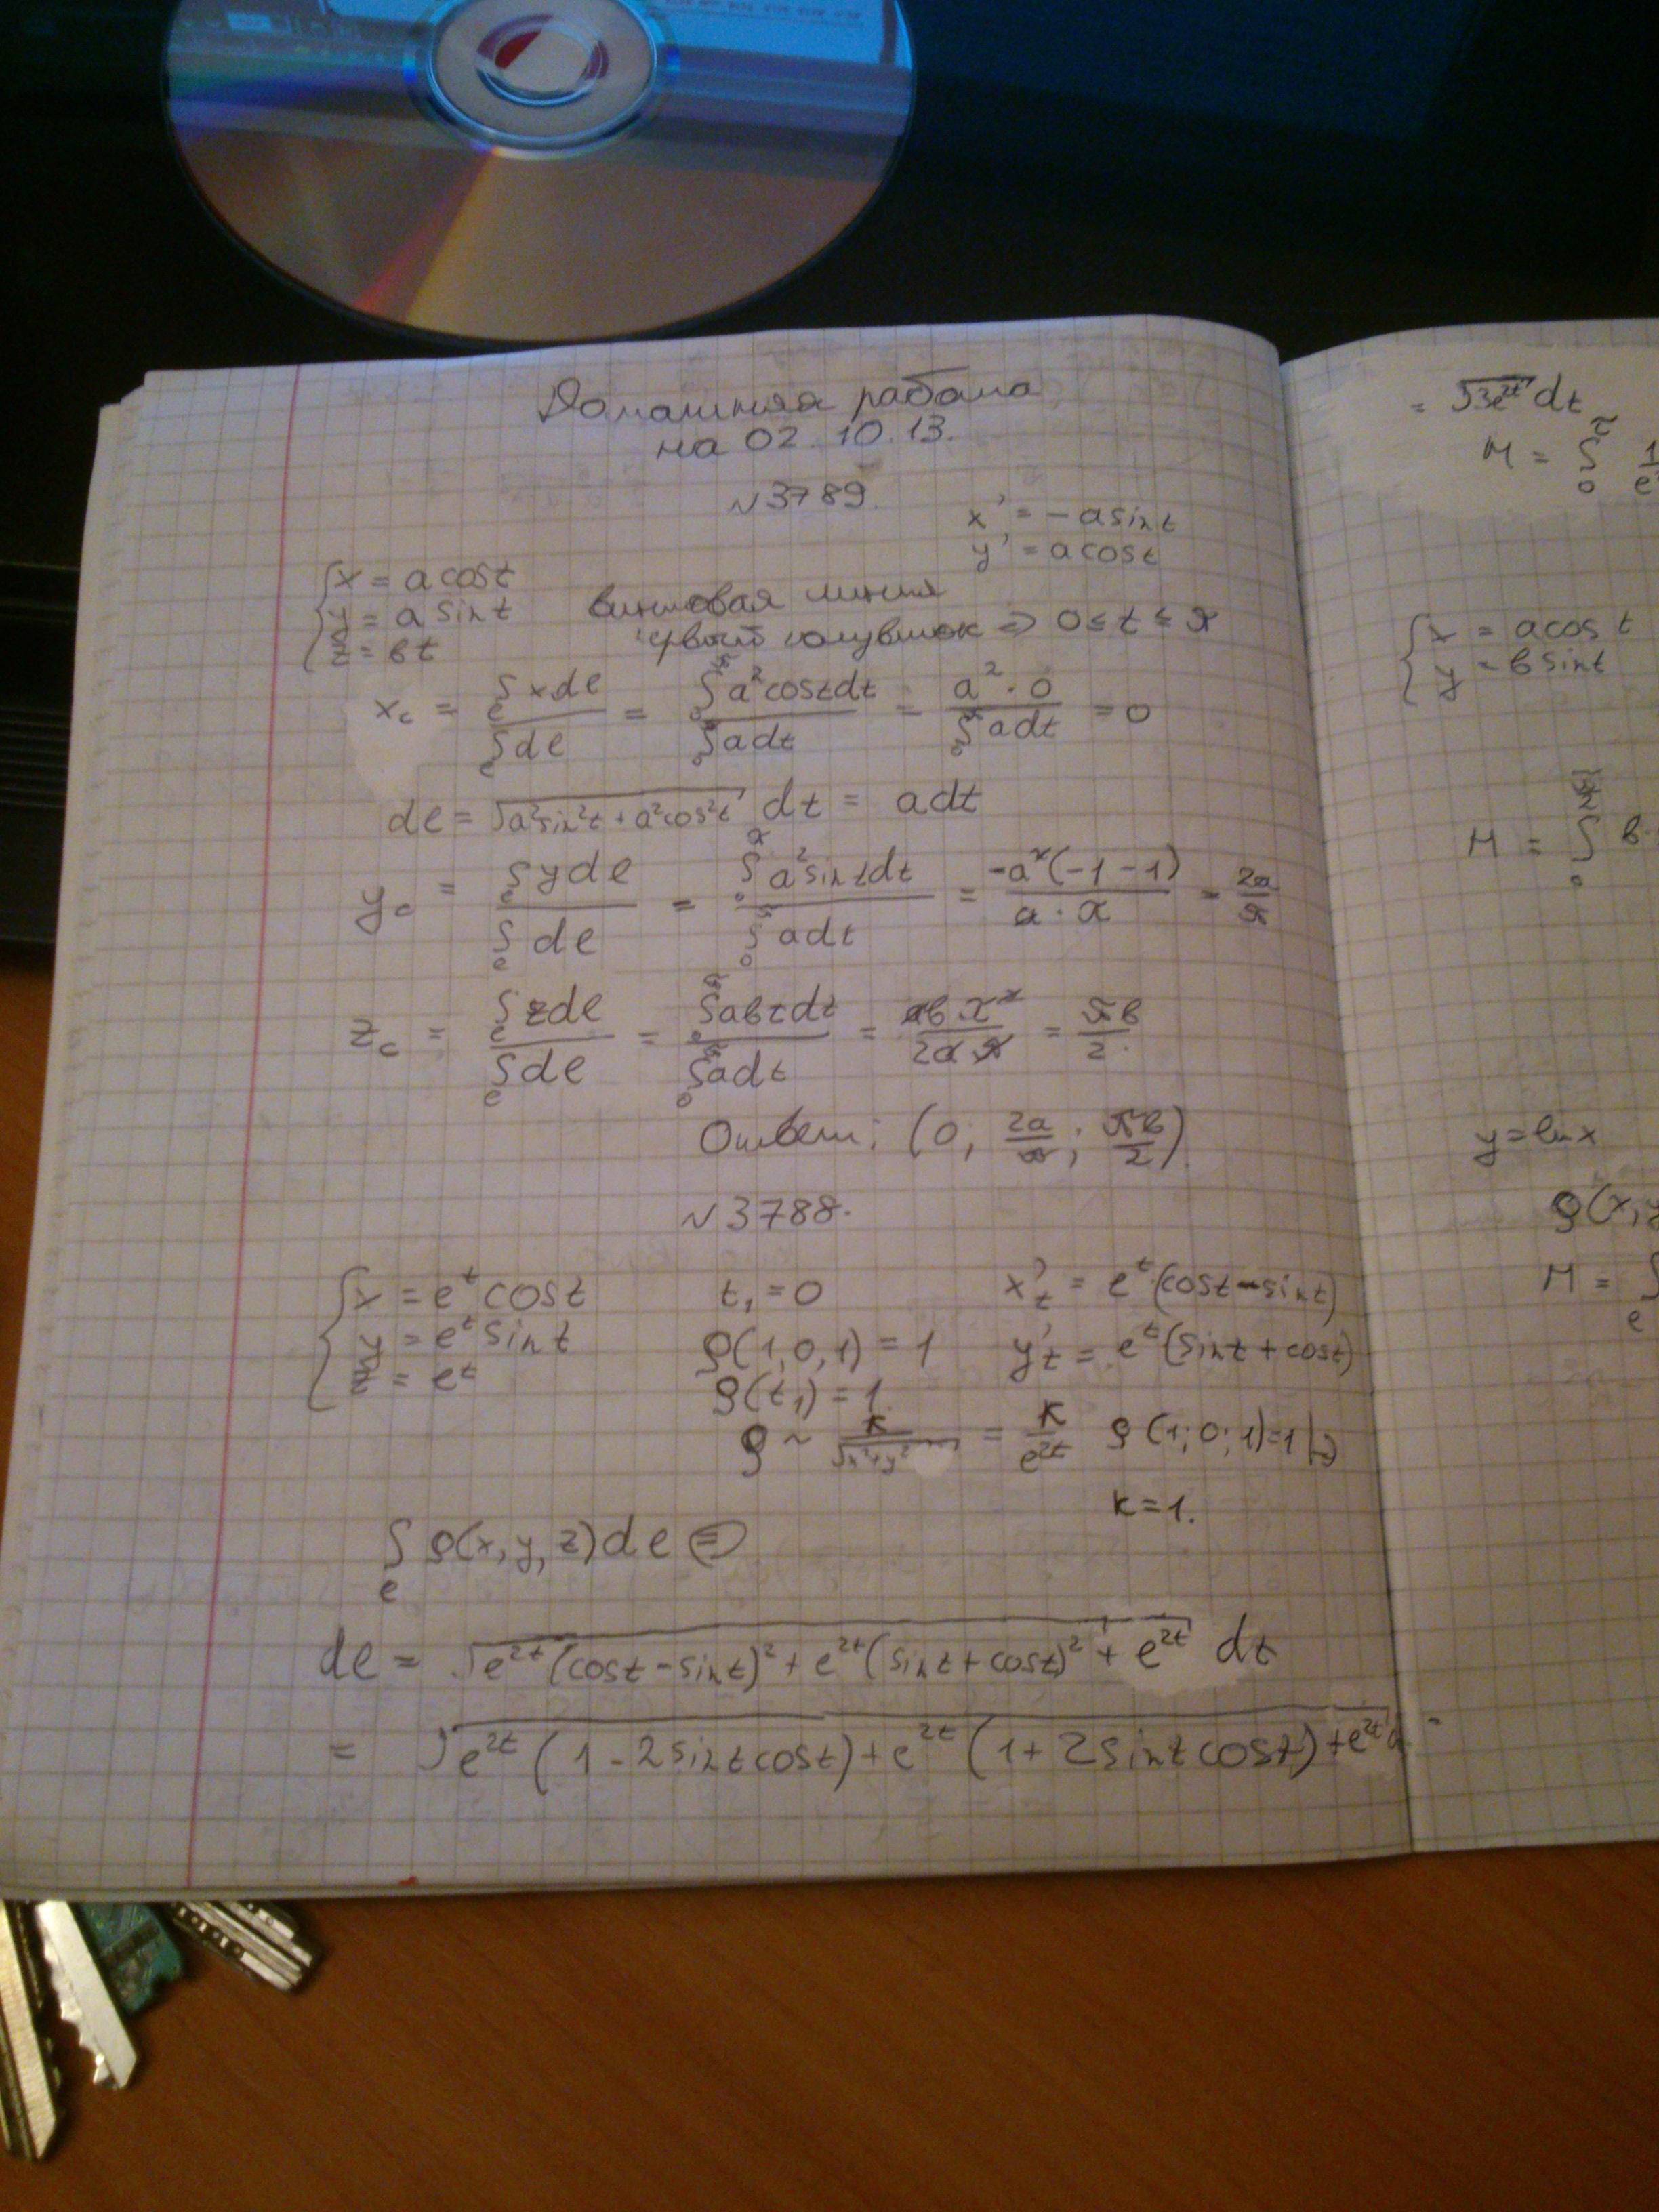 Домашняя работа
на 02.10.13.
№3789.
x' = -a sin t
y' = a cos t
{x = a cos t
y = a sin t
z = bt
винтовая линия
первый полувиток => 0 ≤ t ≤ π
x_c = ∫_e x de / ∫_e de = ∫_0^π a² cos t dt / ∫_0^π a dt = a² · 0 / ∫_0^π a dt = 0
de = √(a² sin² t + a² cos² t) dt = a dt
y_c = ∫_e y de / ∫_e de = ∫_0^π a² sin t dt / ∫_0^π a dt = -a²(-1-1) / a · π = 2a/π
z_c = ∫_e z de / ∫_e de = ∫_0^π abt dt / ∫_0^π a dt = ab π² / 2a π = πb/2.
Ответ: (0; 2a/π; πb/2).
№3788.
{x = e^t cos t
y = e^t sin t
z = e^t
t₁ = 0
ρ(1,0,1) = 1
ρ(t₁) = 1.
x'_t = e^t (cos t - sin t)
y'_t = e^t (sin t + cos t)
ρ ~ k/√(x²+y²) = k/e^2t ρ(1; 0; 1) = 1 =>
k = 1.
∫_e ρ(x, y, z) de =
de = √(e^2t (cos t - sin t)² + e^2t (sin t + cos t)² + e^2t) dt
= √(e^2t (1 - 2 sin t cos t) + e^2t (1 + 2 sin t cos t) + e^2t) d =
= √(3e^2t) dt
M = ∫_0^π 1/e
{x = a cos t
y = b sin t
M = ∫_0 b
y = ln x
ρ(x, y
M = ∫_e